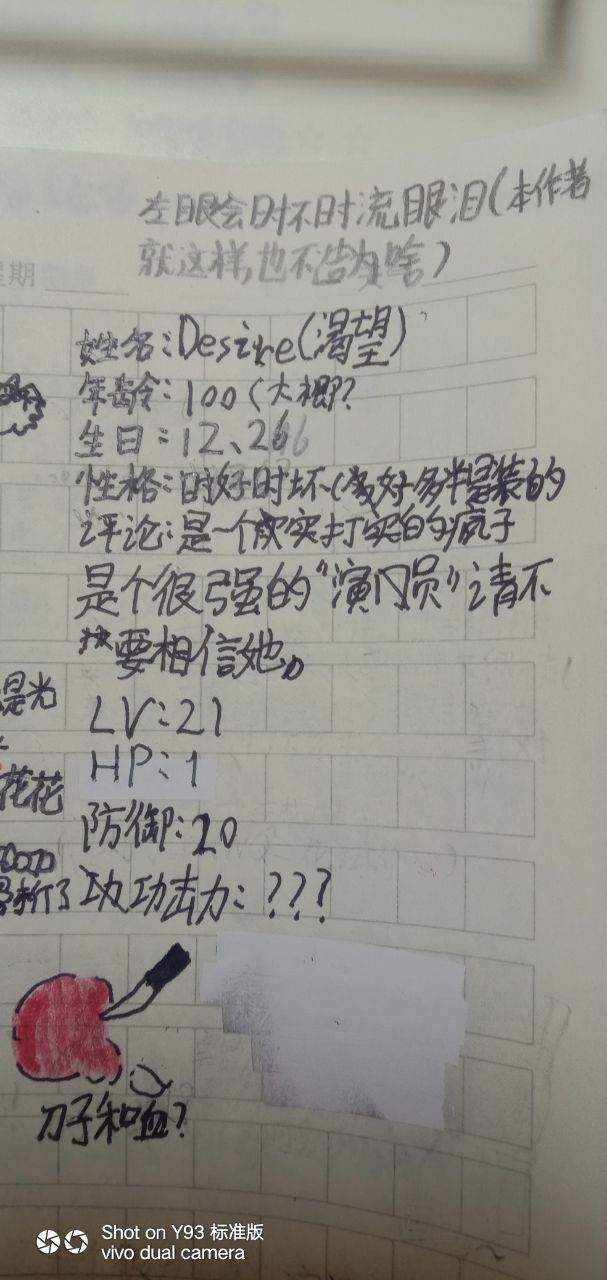 左眼会时不时流眼泪(本作者
就这样,也不告为啥)
星期
姓名:Desire(渴望)
年龄:100(大概?
生日:12、26
性格:时好时坏(好多半是装的
评论:是一个实打实的疯子
是个很强的“演员”请不
要相信她。
LV:21
是光
HP:1
花花
防御:20
折了
功击力:???
刀子和血?
Shot on Y93 标准版
vivo dual camera